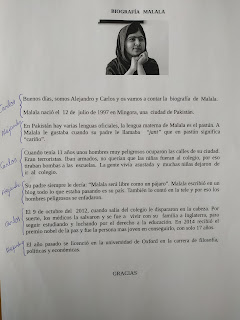 BIOGRAFÍA MALALA
Carlos
Buenos días, somos Alejandro y Carlos y os vamos a contar la biografía de Malala.
Malala nació el 12 de julio de 1997 en Mingora, una ciudad de Pakistán.
Alejandro
En Pakistán hay varias lenguas oficiales, la lengua materna de Malala es el pastún. A
Malala le gustaba cuando su padre le llamaba "jani" que en pastún significa
"cariño".
Carlos
Cuando tenía 11 años unos hombres muy peligrosos ocuparon las calles de su ciudad.
Eran terroristas. Iban armados, no querían que las niñas fueran al colegio, por eso
tiraban bombas a las escuelas. La gente vivía asustada y muchas niñas dejaron de
ir al colegio.
Alejandro
Su padre siempre le decía: "Malala será libre como un pájaro". Malala escribió en un
blog todo lo que estaba pasando es su país. También lo contó en la tele y por eso los
hombres peligrosos se enfadaron.
Carlos
El 9 de octubre del 2012, cuando salía del colegio le dispararon en la cabeza. Por
suerte, los médicos la salvaron y se fue a vivir con su familia a Inglaterra, para
seguir estudiando y luchando por el derecho a la educación. En 2014 recibió el
premio nobel de la paz y fue la persona mas joven en conseguirlo, con solo 17 años.
Alejandro
El año pasado se licenció en la universidad de Oxford en la carrera de filosofía,
políticas y económicas.
GRACIAS